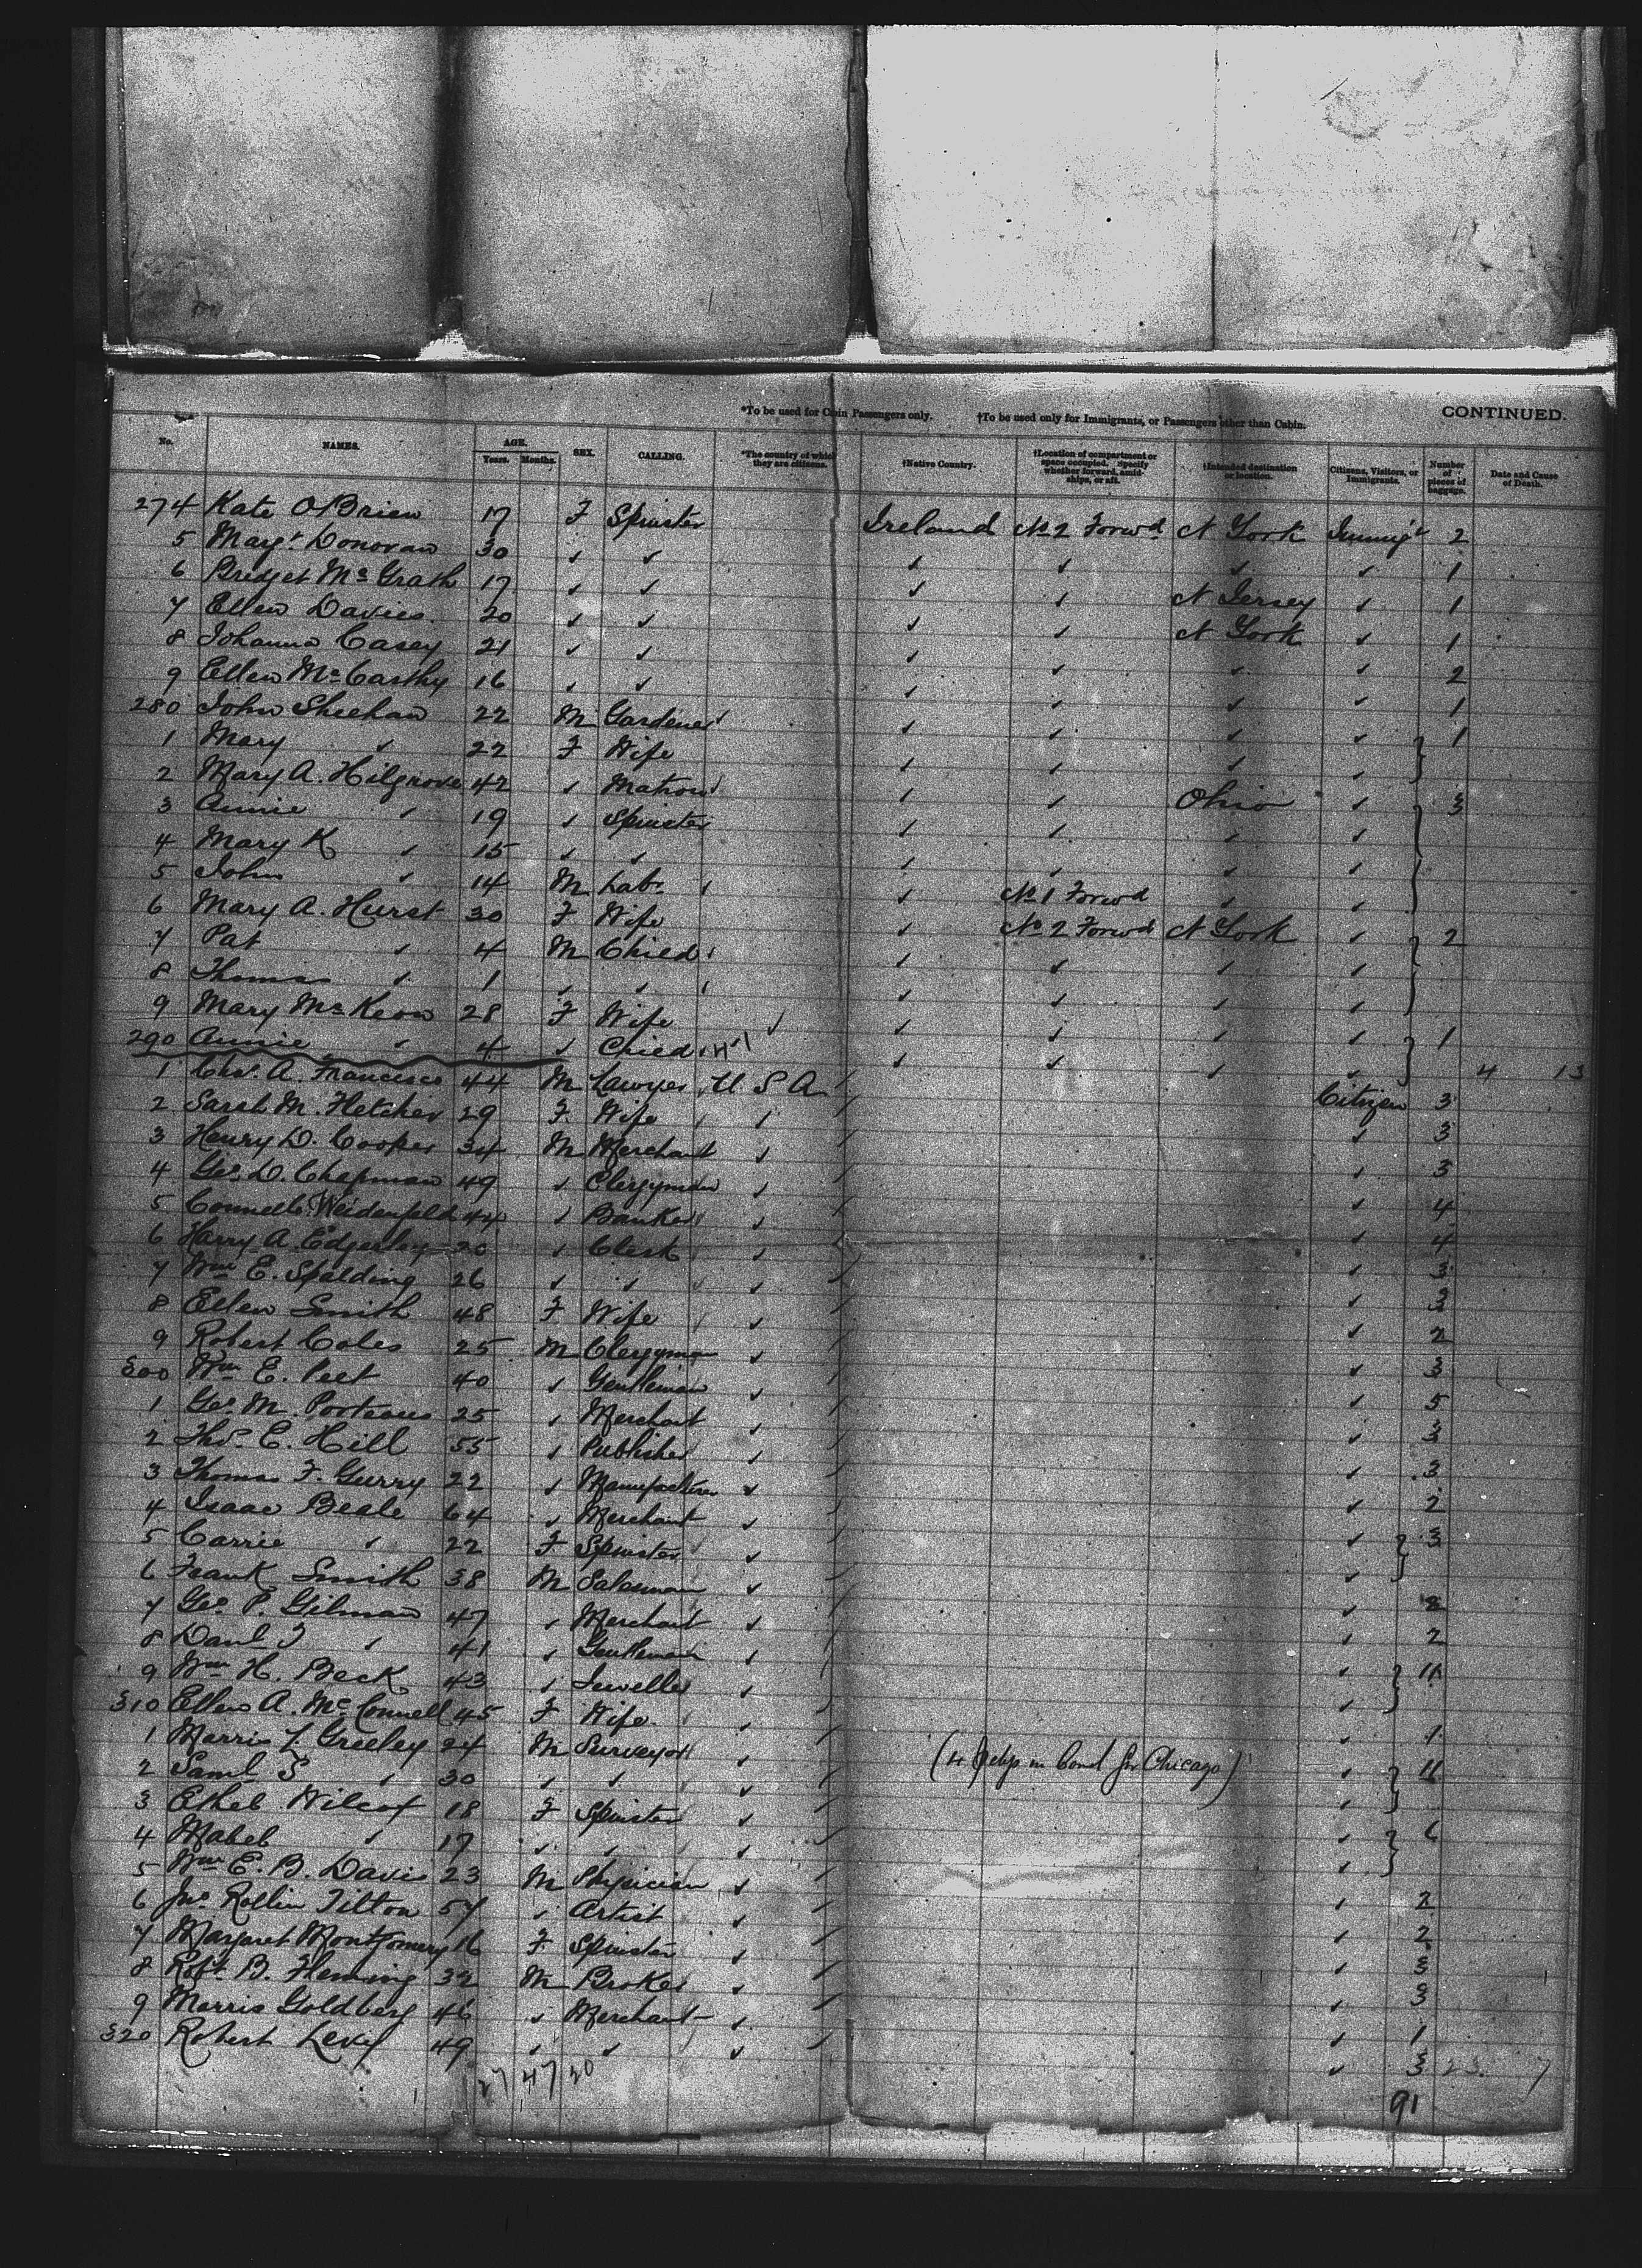 *To be used for Cabin Passengers only. †To be used only for Immigrants, or Passengers other than Cabin. CONTINUED.
No. NAMES. AGE. Years. Months. SEX. CALLING. *The country of which they are citizens. †Native Country. †Location of compartment or space occupied. Specify whether forward, amidships, or aft. †Intended destination or location. Citizens, Visitors, or Immigrants. Number of pieces of baggage. Date and Cause of Death.
274 Kate O'Brien 17 F Spinster Ireland No 2 Forwd N York Immigt 2
5 Margt Donovan 30 ✓ ✓ ✓ ✓ ✓ ✓ 1
6 Bridget McGrath 17 ✓ ✓ ✓ ✓ N Jersey ✓ 1
7 Ellen Davies 20 ✓ ✓ ✓ ✓ N York ✓ 1
8 Johanna Casey 21 ✓ ✓ ✓ ✓ ✓ ✓ 2
9 Ellen McCarthy 16 ✓ ✓ ✓ ✓ ✓ ✓ 1
280 John Sheehan 22 M Gardener ✓ ✓ ✓ ✓ 1
1 Mary ✓ 22 F Wife ✓ ✓ ✓ ✓
2 Mary A. Hilgrove 42 ✓ Matron ✓ ✓ Ohio ✓ 3
3 Annie ✓ 19 ✓ Spinster ✓ ✓ ✓ ✓
4 Mary K ✓ 15 ✓ ✓ ✓ ✓ ✓ ✓
5 John ✓ 14 M Labr ✓ No 1 Forwd ✓ ✓
6 Mary A. Hurst 30 F Wife ✓ No 2 Forwd N York ✓ 2
7 Pat ✓ 4 M Child ✓ ✓ ✓ ✓
8 Thomas ✓ 1 ✓ ✓ ✓ ✓ ✓ ✓
9 Mary McKeon 28 F Wife ✓ ✓ ✓ ✓ ✓ 1
290 Annie ✓ 4 ✓ Child ✓ ✓ ✓ ✓ 4 13
1 Chs. A. Francisco 44 M Lawyer U S A Citizen 3
2 Sarah M. Fletcher 29 F Wife ✓ ✓ 3
3 Henry D. Cooper 34 M Merchant ✓ ✓ 3
4 Geo. D. Chapman 49 ✓ Clergyman ✓ ✓ 4
5 Weidenfeld 44 ✓ Banker ✓ ✓ 4
6 Harry A. Edgerley 20 ✓ Clerk ✓ ✓ 3
7 Wm E. Spalding 26 ✓ ✓ ✓ ✓ 3
8 Ellen Smith 48 F Wife ✓ ✓ 2
9 Robert Coles 25 M Clergyman ✓ ✓ 3
300 Wm E. Peet 40 ✓ Gentleman ✓ ✓ 5
1 Geo. M. Porteous 25 ✓ Merchant ✓ ✓ 3
2 Thos. E. Hill 55 ✓ Publisher ✓ ✓ 3
3 Thomas F. Gurry 22 ✓ Manufacturer ✓ ✓ 2
4 Isaac Beale 64 ✓ Merchant ✓ ✓ 3
5 Carrie ✓ 22 F Spinster ✓ ✓
6 Frank Smith 38 M Salesman ✓ ✓ 2
7 Geo. P. Gilman 47 ✓ Merchant ✓ ✓ 2
8 Danl ✓ 41 ✓ Gentleman ✓ ✓ 4
9 Wm H. Beck 43 ✓ Jeweller ✓ ✓
310 Ellen A. McConnell 45 F Wife ✓ 1
1 Morris L. Greeley 24 M Surveyor ✓ (4 pkgs in bond for Chicago) ✓ 11
2 Saml S ✓ 30 ✓ ✓ ✓ ✓
3 Ethel Wilcox 18 F Spinster ✓ ✓ 6
4 Mabel ✓ 17 ✓ ✓ ✓ ✓
5 Wm E. B. Davis 23 M Physician ✓ ✓ 2
6 Jno. Rollin Tilton 57 ✓ Artist ✓ ✓ 2
7 Margaret Montgomery 16 F Spinster ✓ ✓ 3
8 Robt. B. Fleming 32 M Broker ✓ ✓ 3
9 Morris Goldberg 46 ✓ Merchant ✓ ✓ 1
320 Robert Levy 49 ✓ ✓ ✓ ✓ 3 23 7
27 47 20
91